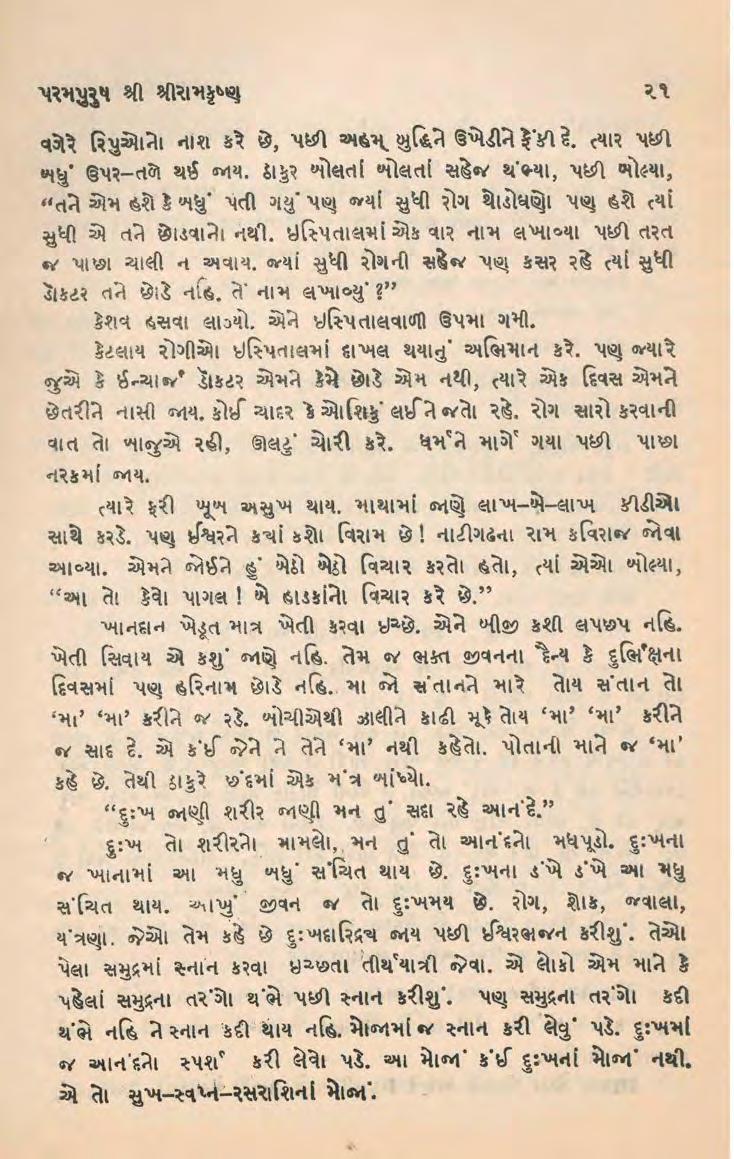 પરમપુરુષ શ્રી શ્રીરામકૃષ્ણ ૨૧
વગેરે રિપુઓનો નાશ કરે છે, પછી અહમ્ બુદ્ધિને ઉખેડીને ફેંકી દે. ત્યાર પછી
બધું ઉપર–તળે થઈ જાય. ઠાકુર બોલતાં બોલતાં સહેજ થંભ્યા, પછી બોલ્યા,
“તને એમ હશે કે બધું પતી ગયું પણ જ્યાં સુધી રોગ થોડોઘણો પણ હશે ત્યાં
સુધી એ તને છોડવાનો નથી. ઇસ્પિતાલમાં એક વાર નામ લખાવ્યા પછી તરત
જ પાછા ચાલી ન અવાય. જ્યાં સુધી રોગની સહેજ પણ કસર રહે ત્યાં સુધી
ડૉકટર તને છોડે નહિ. તેં નામ લખાવ્યું ?”
કેશવ હસવા લાગ્યો. એને ઇસ્પિતાલવાળી ઉપમા ગમી.
કેટલાય રોગીઓ ઇસ્પિતાલમાં દાખલ થયાનું અભિમાન કરે. પણ જ્યારે
જુએ કે ઈન્ચાર્જ ડૉકટર એમને કેમે છોડે એમ નથી, ત્યારે એક દિવસ એમને
છેતરીને નાસી જાય. કોઈ ચાદર કે ઓશિકું લઈને જતો રહે. રોગ સારો કરવાની
વાત તો બાજુએ રહી, ઊલટું ચોરી કરે. ધર્મને માર્ગે ગયા પછી પાછા
નરકમાં જાય.
ત્યારે ફરી ખૂબ અસુખ થાય. માથામાં જાણે લાખ–બે–લાખ કીડીઓ
સાથે કરડે. પણ ઈશ્વરને કયાં કશો વિરામ છે ! નાટીગઢના રામ કવિરાજ જોવા
આવ્યા. એમને જોઈને હું બેઠો બેઠો વિચાર કરતો હતો, ત્યાં એઓ બોલ્યા,
“આ તો કેવો પાગલ ! બે હાડકાંનો વિચાર કરે છે.”
ખાનદાન ખેડૂત માત્ર ખેતી કરવા ઇચ્છે. એને બીજી કશી લપછપ નહિ.
ખેતી સિવાય એ કશું જાણે નહિ. તેમ જ ભક્ત જીવનના દૈન્ય કે દુર્ભિક્ષના
દિવસમાં પણ હરિનામ છોડે નહિ. મા જો સંતાનને મારે તોય સંતાન તો
‘મા’ ‘મા’ કરીને જ રડે. બોચીએથી ઝાલીને કાઢી મૂકે તોય ‘મા’ ‘મા’ કરીને
જ સાદ દે. એ કંઈ જેને ને તેને ‘મા’ નથી કહેતો. પોતાની માને જ ‘મા’
કહે છે. તેથી ઠાકુરે છંદમાં એક મંત્ર બાંધ્યો.
“દુઃખ જાણી શરીર જાણી મન તું સદા રહે આનંદે.”
દુઃખ તો શરીરનો મામલો, મન તું તો આનંદનો મધપૂડો. દુઃખના
જ ખાનામાં આ મધુ બધું સંચિત થાય છે. દુઃખના ડંખે ડંખે આ મધુ
સંચિત થાય. આખું જીવન જ તો દુઃખમય છે. રોગ, શોક, જ્વાલા,
યંત્રણા. જેઓ તેમ કહે છે દુઃખદારિદ્રય જાય પછી ઈશ્વરભજન કરીશું. તેઓ
પેલા સમુદ્રમાં સ્નાન કરવા ઇચ્છતા તીર્થયાત્રી જેવા. એ લોકો એમ માને કે
પહેલાં સમુદ્રના તરંગો થંભે પછી સ્નાન કરીશું. પણ સમુદ્રના તરંગો કદી
થંભે નહિ ને સ્નાન કદી થાય નહિ. મોજામાં જ સ્નાન કરી લેવું પડે. દુઃખમાં
જ આનંદનો સ્પર્શ કરી લેવો પડે. આ મોજાં કંઈ દુઃખનાં મોજાં નથી.
એ તો સુખ–સ્વપ્ન–રસરાશિનાં મોજાં.